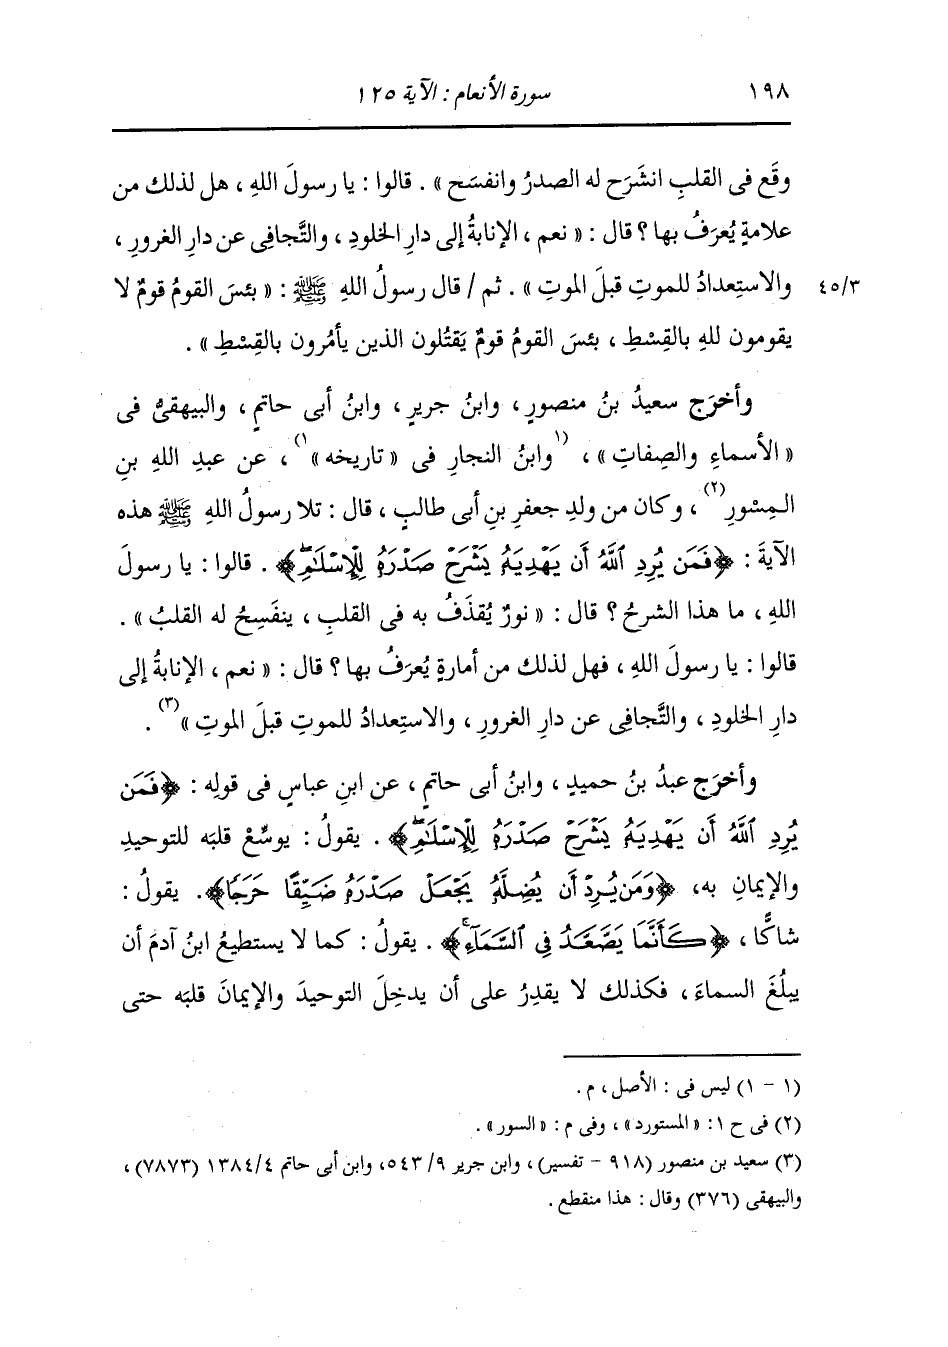 ١٩٨ سورة الأنعام : الآية ١٢٥
وقَع فى القلبِ انشَرَح له الصدرُ وانفسَح » . قالوا : يا رسولَ اللهِ ، هل لذلك من
علامةٍ يُعرَفُ بها ؟ قال : « نعم ، الإنابةُ إلى دارِ الخلودِ ، والتَّجافِى عن دارِ الغرورِ ،
٤٥/٣ والاستِعدادُ للموتِ قبلَ الموتِ » . ثم / قال رسولُ اللهِ ﷺ : « بئسَ القومُ قومٌ لا
يقومون للهِ بالقِسْطِ ، بئسَ القومُ قومٌ يَقتُلون الذين يأمُرون بالقِسْطِ » .
وأخرَج سعيدُ بنُ منصورٍ ، وابنُ جريرٍ ، وابنُ أبى حاتمٍ ، والبيهقىُّ فى
« الأسماءِ والصفاتِ » ، (١وابنُ النجارِ فى « تاريخه »١) ، عن عبدِ اللهِ بنِ
المِسْورِ(٢) ، وكان من ولدِ جعفرِ بنِ أبى طالبٍ ، قال : تلا رسولُ اللهِ ﷺ هذه
الآيةَ : ﴿فَمَن يُرِدِ ٱللَّهُ أَن يَهْدِيَهُۥ يَشْرَحْ صَدْرَهُۥ لِلْإِسْلَٰمِۖ﴾ . قالوا : يا رسولَ
اللهِ ، ما هذا الشرحُ ؟ قال : « نورٌ يُقذَفُ به فى القلبِ ، ينفَسِحُ له القلبُ » .
قالوا : يا رسولَ اللهِ ، فهل لذلك من أمارةٍ يُعرَفُ بها ؟ قال : « نعم ، الإنابةُ إلى
دارِ الخلودِ ، والتَّجافِى عن دارِ الغرورِ ، والاستِعدادُ للموتِ قبلَ الموتِ »(٣) .
وأخرَج عبدُ بنُ حميدٍ ، وابنُ أبى حاتمٍ ، عن ابنِ عباسٍ فى قولِه : ﴿فَمَن
يُرِدِ ٱللَّهُ أَن يَهْدِيَهُۥ يَشْرَحْ صَدْرَهُۥ لِلْإِسْلَٰمِۖ﴾ . يقولُ : يوسِّعْ قلبَه للتوحيدِ
والإيمانِ به، ﴿وَمَن يُرِدْ أَن يُضِلَّهُۥ يَجْعَلْ صَدْرَهُۥ ضَيِّقًا حَرَجًا﴾. يقولُ :
شاكًّا ، ﴿كَأَنَّمَا يَصَّعَّدُ فِى ٱلسَّمَآءِۚ﴾ . يقولُ : كما لا يستطيعُ ابنُ آدمَ أن
يبلُغَ السماءَ ، فكذلك لا يقدِرُ على أن يدخِلَ التوحيدَ والإيمانَ قلبَه حتى
(١ - ١) ليس فى : الأصل ، م .
(٢) فى ح ١ : « المستورد » ، وفى م : « السور » .
(٣) سعيد بن منصور (٩١٨ - تفسير) ، وابن جرير ٩/ ٥٤٣، وابن أبى حاتم ١٣٨٤/٤ (٧٨٧٣) ،
والبيهقى (٣٧٦) وقال : هذا منقطع .